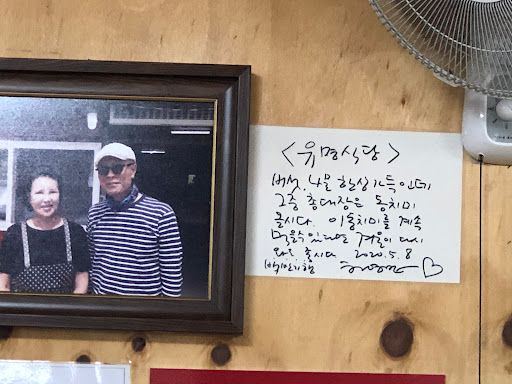 <유명식당>
버섯, 나물 한상 가득인데
그중 총대장은 동치미
올시다. 이 동치미를 계속
먹을수 있다면 겨울이 다시
와도 좋시다 2020.5.8
백반기행